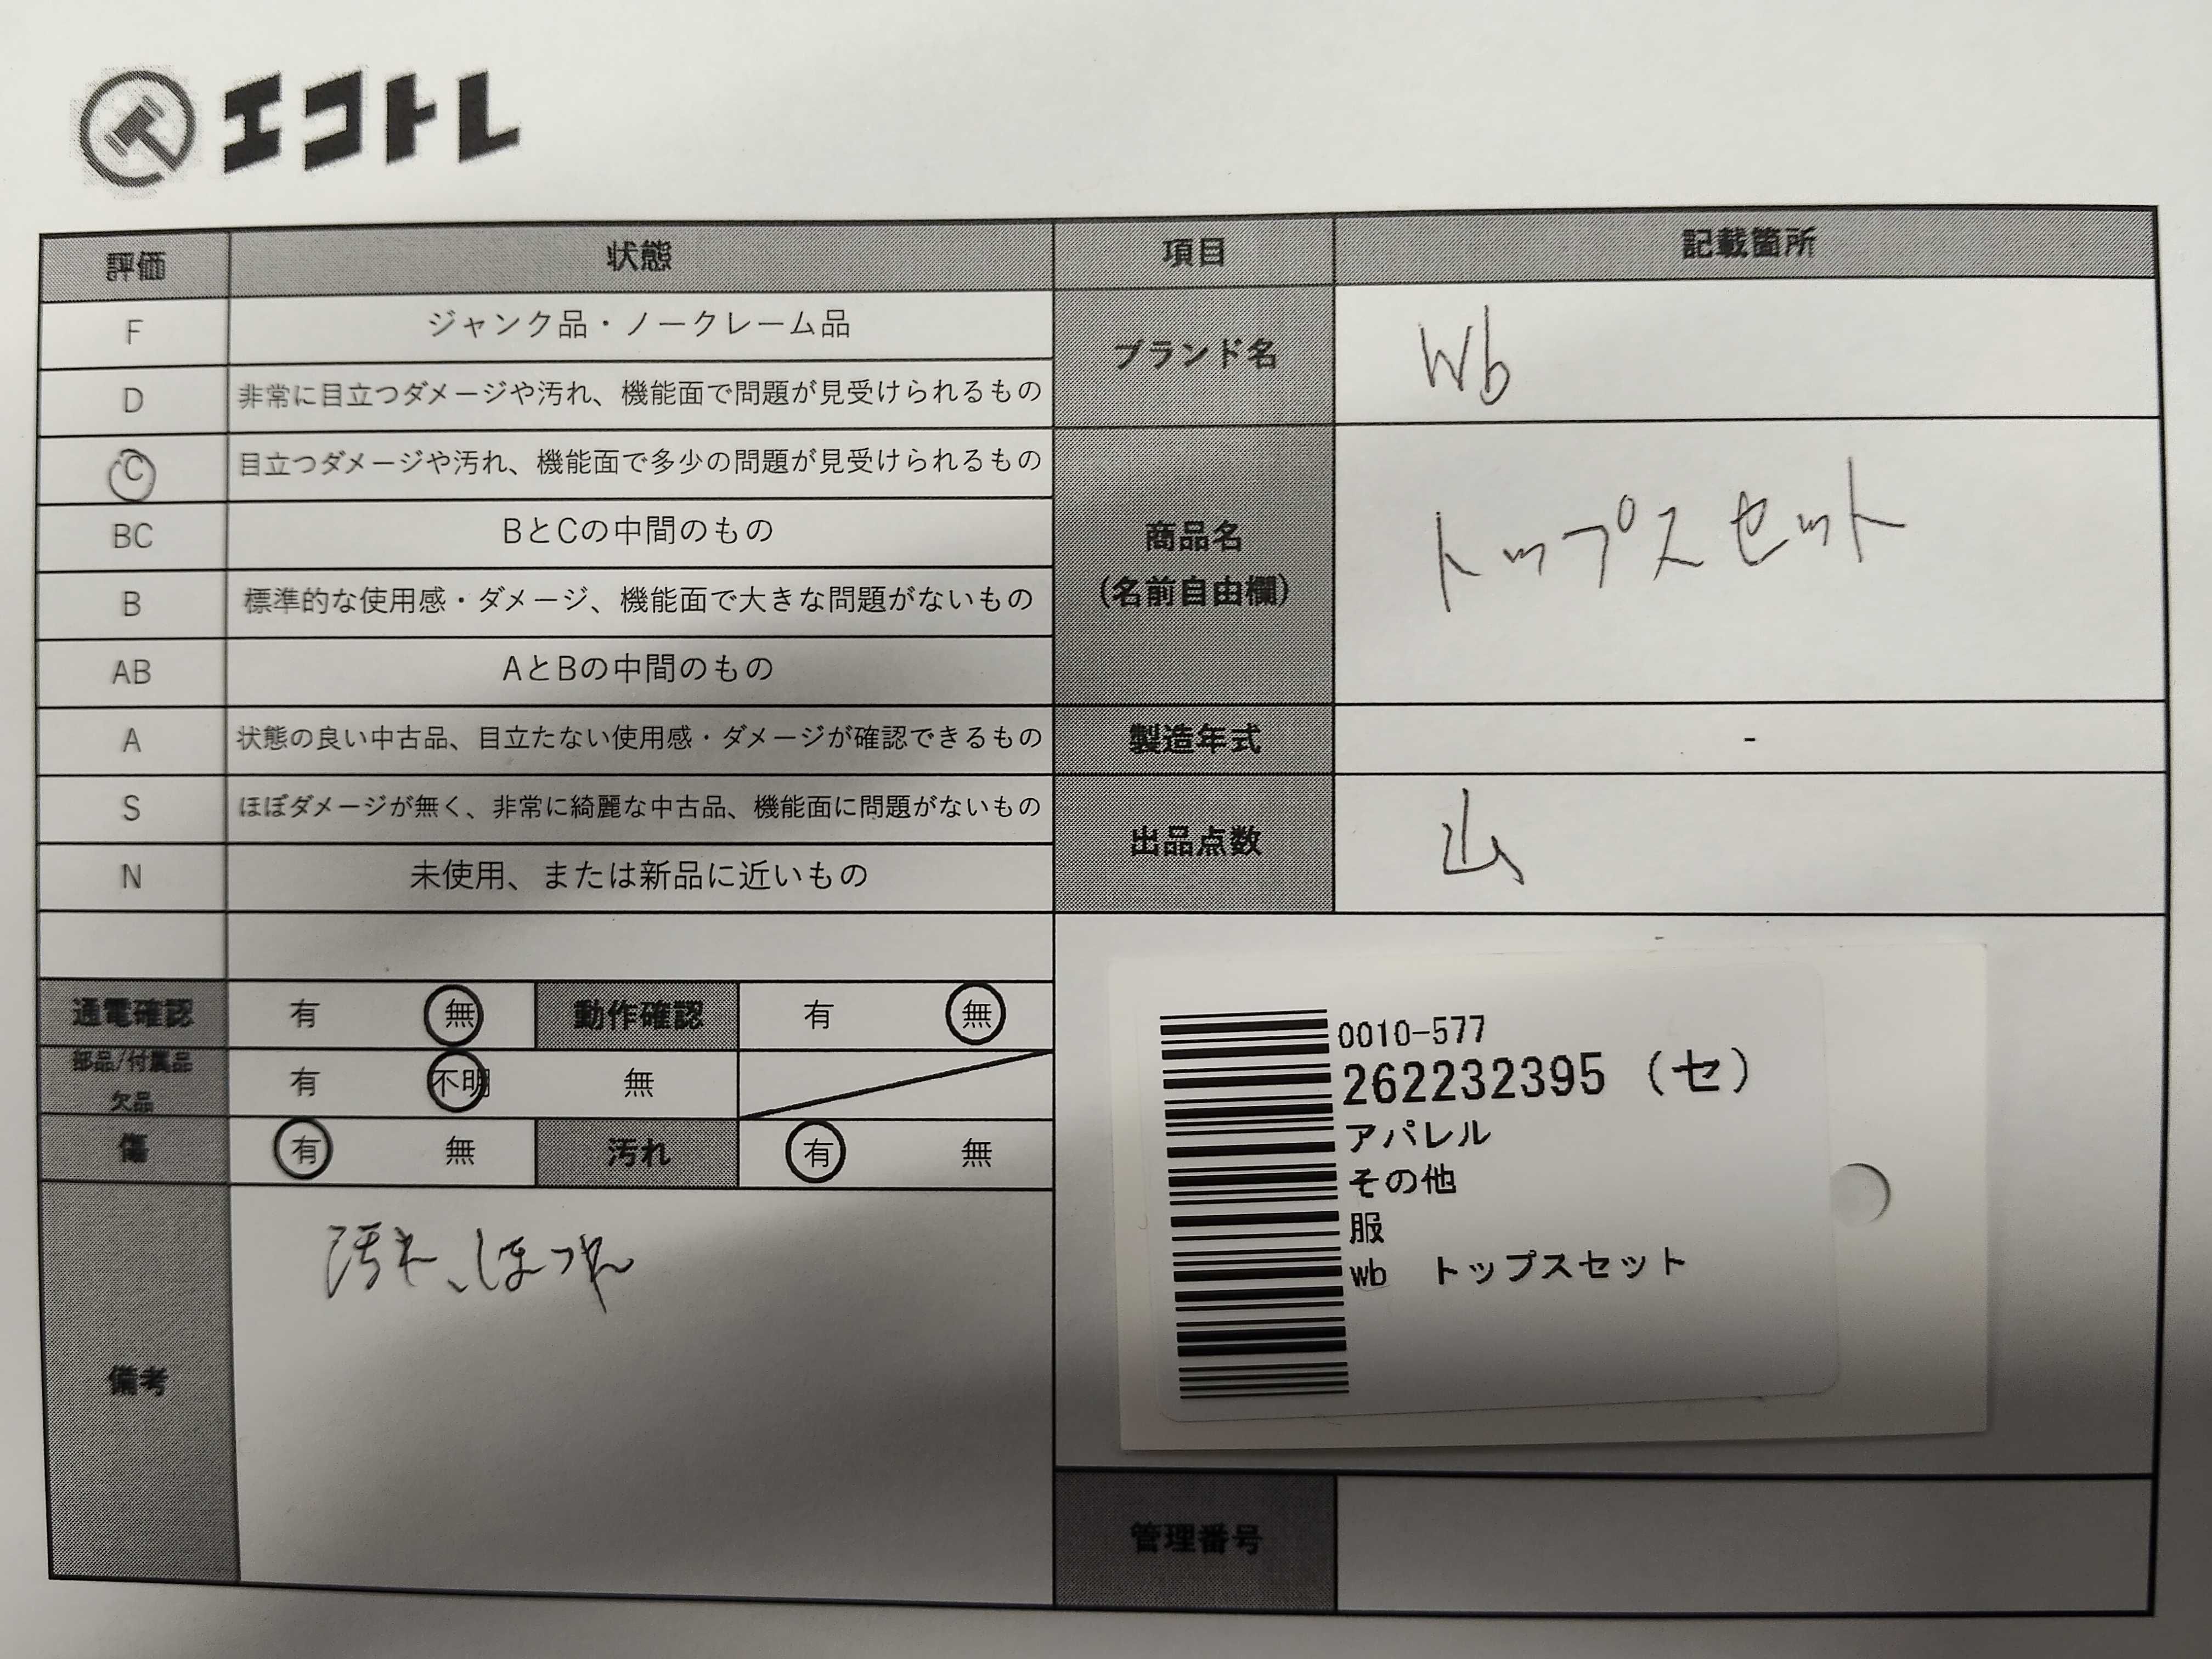 エコトレ
評価 状態 項目 記載箇所
F ジャンク品・ノークレーム品
D 非常に目立つダメージや汚れ、機能面で問題が見受けられるもの
C 目立つダメージや汚れ、機能面で多少の問題が見受けられるもの
BC BとCの中間のもの
B 標準的な使用感・ダメージ、機能面で大きな問題がないもの
AB AとBの中間のもの
A 状態の良い中古品、目立たない使用感・ダメージが確認できるもの
S ほぼダメージが無く、非常に綺麗な中古品、機能面に問題がないもの
N 未使用、または新品に近いもの
ブランド名 Wb
商品名
(名前自由欄)
トップスセット
製造年式 -
出品点数 山
通電確認 有 無 動作確認 有 無
部品/付属品
欠品
有 不明 無
傷 有 無 汚れ 有 無
備考
汚れ、ほつれ
0010-577
262232395 (セ)
アパレル
その他
服
wb トップスセット
管理番号